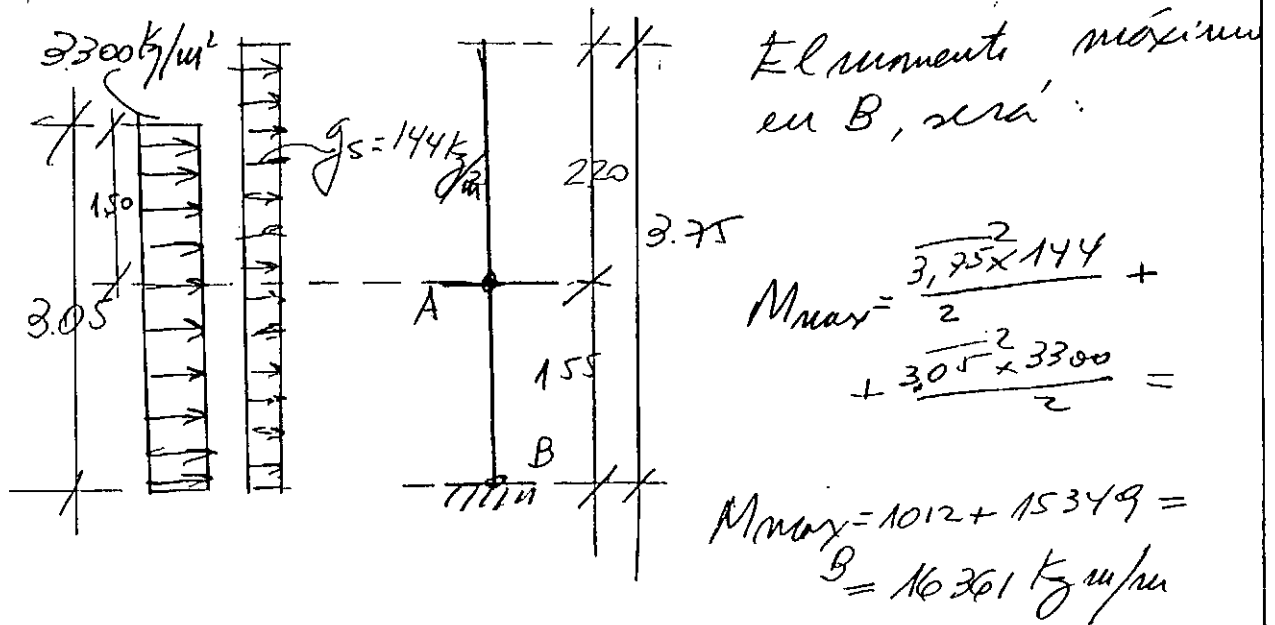 3300 kg/m²
gs=144 kg/m²
150
3.05
220
3.75
A
155
B
El momento máximo
en B, será:
Mmax = 3,75² x 144 / 2 +
+ 3.05² x 3300 / 2 =
Mmax = 1012 + 15349 =
B
= 16361 kg m/m